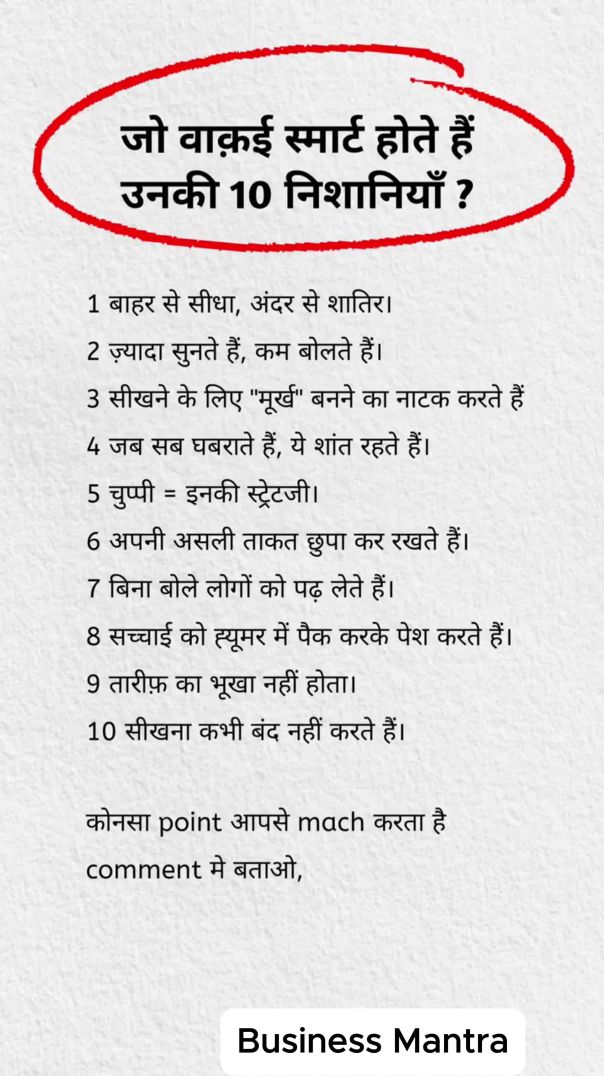 जो वाक़ई स्मार्ट होते हैं
उनकी 10 निशानियाँ ?
1 बाहर से सीधा, अंदर से शातिर।
2 ज़्यादा सुनते हैं, कम बोलते हैं।
3 सीखने के लिए "मूर्ख" बनने का नाटक करते हैं
4 जब सब घबराते हैं, ये शांत रहते हैं।
5 चुप्पी = इनकी स्ट्रेटजी।
6 अपनी असली ताकत छुपा कर रखते हैं।
7 बिना बोले लोगों को पढ़ लेते हैं।
8 सच्चाई को ह्यूमर में पैक करके पेश करते हैं।
9 तारीफ़ का भूखा नहीं होता।
10 सीखना कभी बंद नहीं करते हैं।
कोनसा point आपसे mach करता है
comment मे बताओ,
Business Mantra